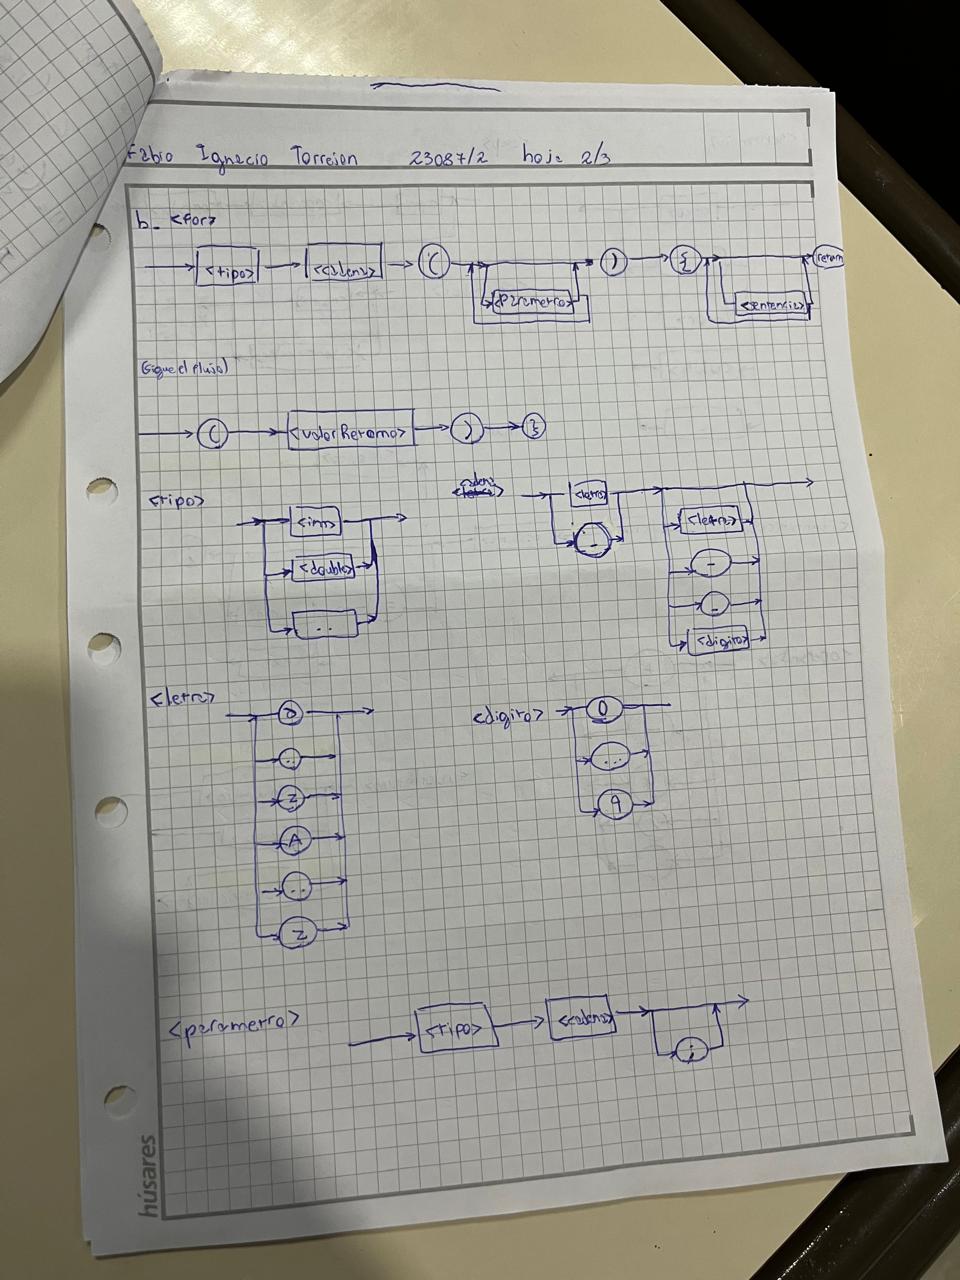 Fabio Ignacio Torrejon 23087/2 hoja 2/3
b_ <for>
<tipo> <cadena> ( <Parametro> ) { <sentencia> return
(sigue el flujo)
( <valorRetorno> ) }
<tipo> <int> <double> ..
cadena <letra> _ <letra> - _ <digito>
<letra> a .. z A .. Z
<digito> 0 ... 9
<parametro> <tipo> <cadena> ;
húsares